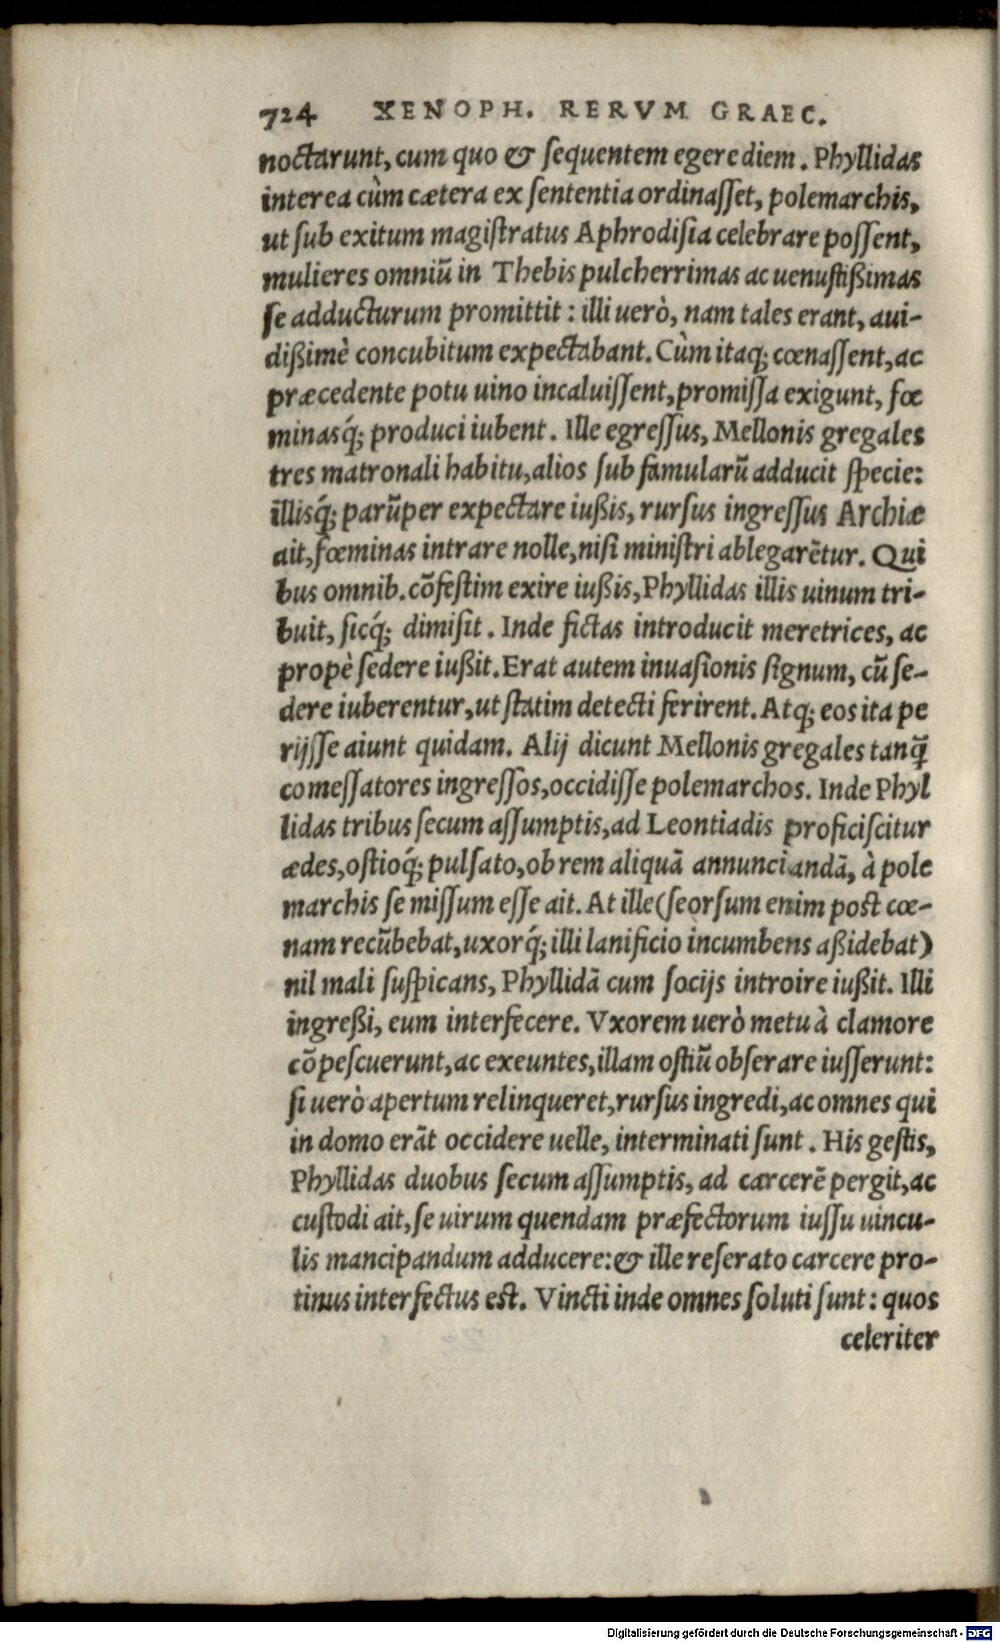 724 XENOPH. RERVM GRAEC.
noctarunt, cum quo & sequentem egere diem. Phyllidas
interea cùm cætera ex sententia ordinasset, polemarchis,
ut sub exitum magistratus Aphrodisia celebrare possent,
mulieres omniũ in Thebis pulcherrimas ac uenustißimas
se adducturum promittit: illi uerò, nam tales erant, aui-
dißimè concubitum expectabant. Cùm itaq; cœnassent, ac
præcedente potu uino incaluissent, promissa exigunt, fœ
minasq́; produci iubent. Ille egressus, Mellonis gregales
tres matronali habitu, alios sub famularũ adducit specie:
illisq́; parũper expectare iußis, rursus ingressus Archiæ
ait, fœminas intrare nolle, nisi ministri ablegarẽtur. Qui
bus omnib. cõfestim exire iußis, Phyllidas illis uinum tri-
buit, sicq́; dimisit. Inde fictas introducit meretrices, ac
propè sedere iußit. Erat autem inuasionis signum, cũ se-
dere iuberentur, ut statim detecti ferirent. Atq; eos ita pe
rijsse aiunt quidam. Alij dicunt Mellonis gregales tanq̃
comessatores ingressos, occidisse polemarchos. Inde Phyl
lidas tribus secum assumptis, ad Leontiadis proficiscitur
ædes, ostioq́; pulsato, ob rem aliquã annunciandã, à pole
marchis se missum esse ait. At ille (seorsum enim post cœ-
nam recũbebat, uxorq́; illi lanificio incumbens aßidebat)
nil mali suspicans, Phyllidã cum socijs introire iußit. Illi
ingreßi, eum interfecere. Vxorem uerò metu à clamore
cõpescuerunt, ac exeuntes, illam ostiũ obserare iusserunt:
si uerò apertum relinqueret, rursus ingredi, ac omnes qui
in domo erãt occidere uelle, interminati sunt. His gestis,
Phyllidas duobus secum assumptis, ad carcerẽ pergit, ac
custodi ait, se uirum quendam præfectorum iussu uincu-
lis mancipandum adducere: & ille reserato carcere pro-
tinus interfectus est. Vincti inde omnes soluti sunt: quos
celeriter
Digitalisierung gefördert durch die Deutsche Forschungsgemeinschaft - DFG